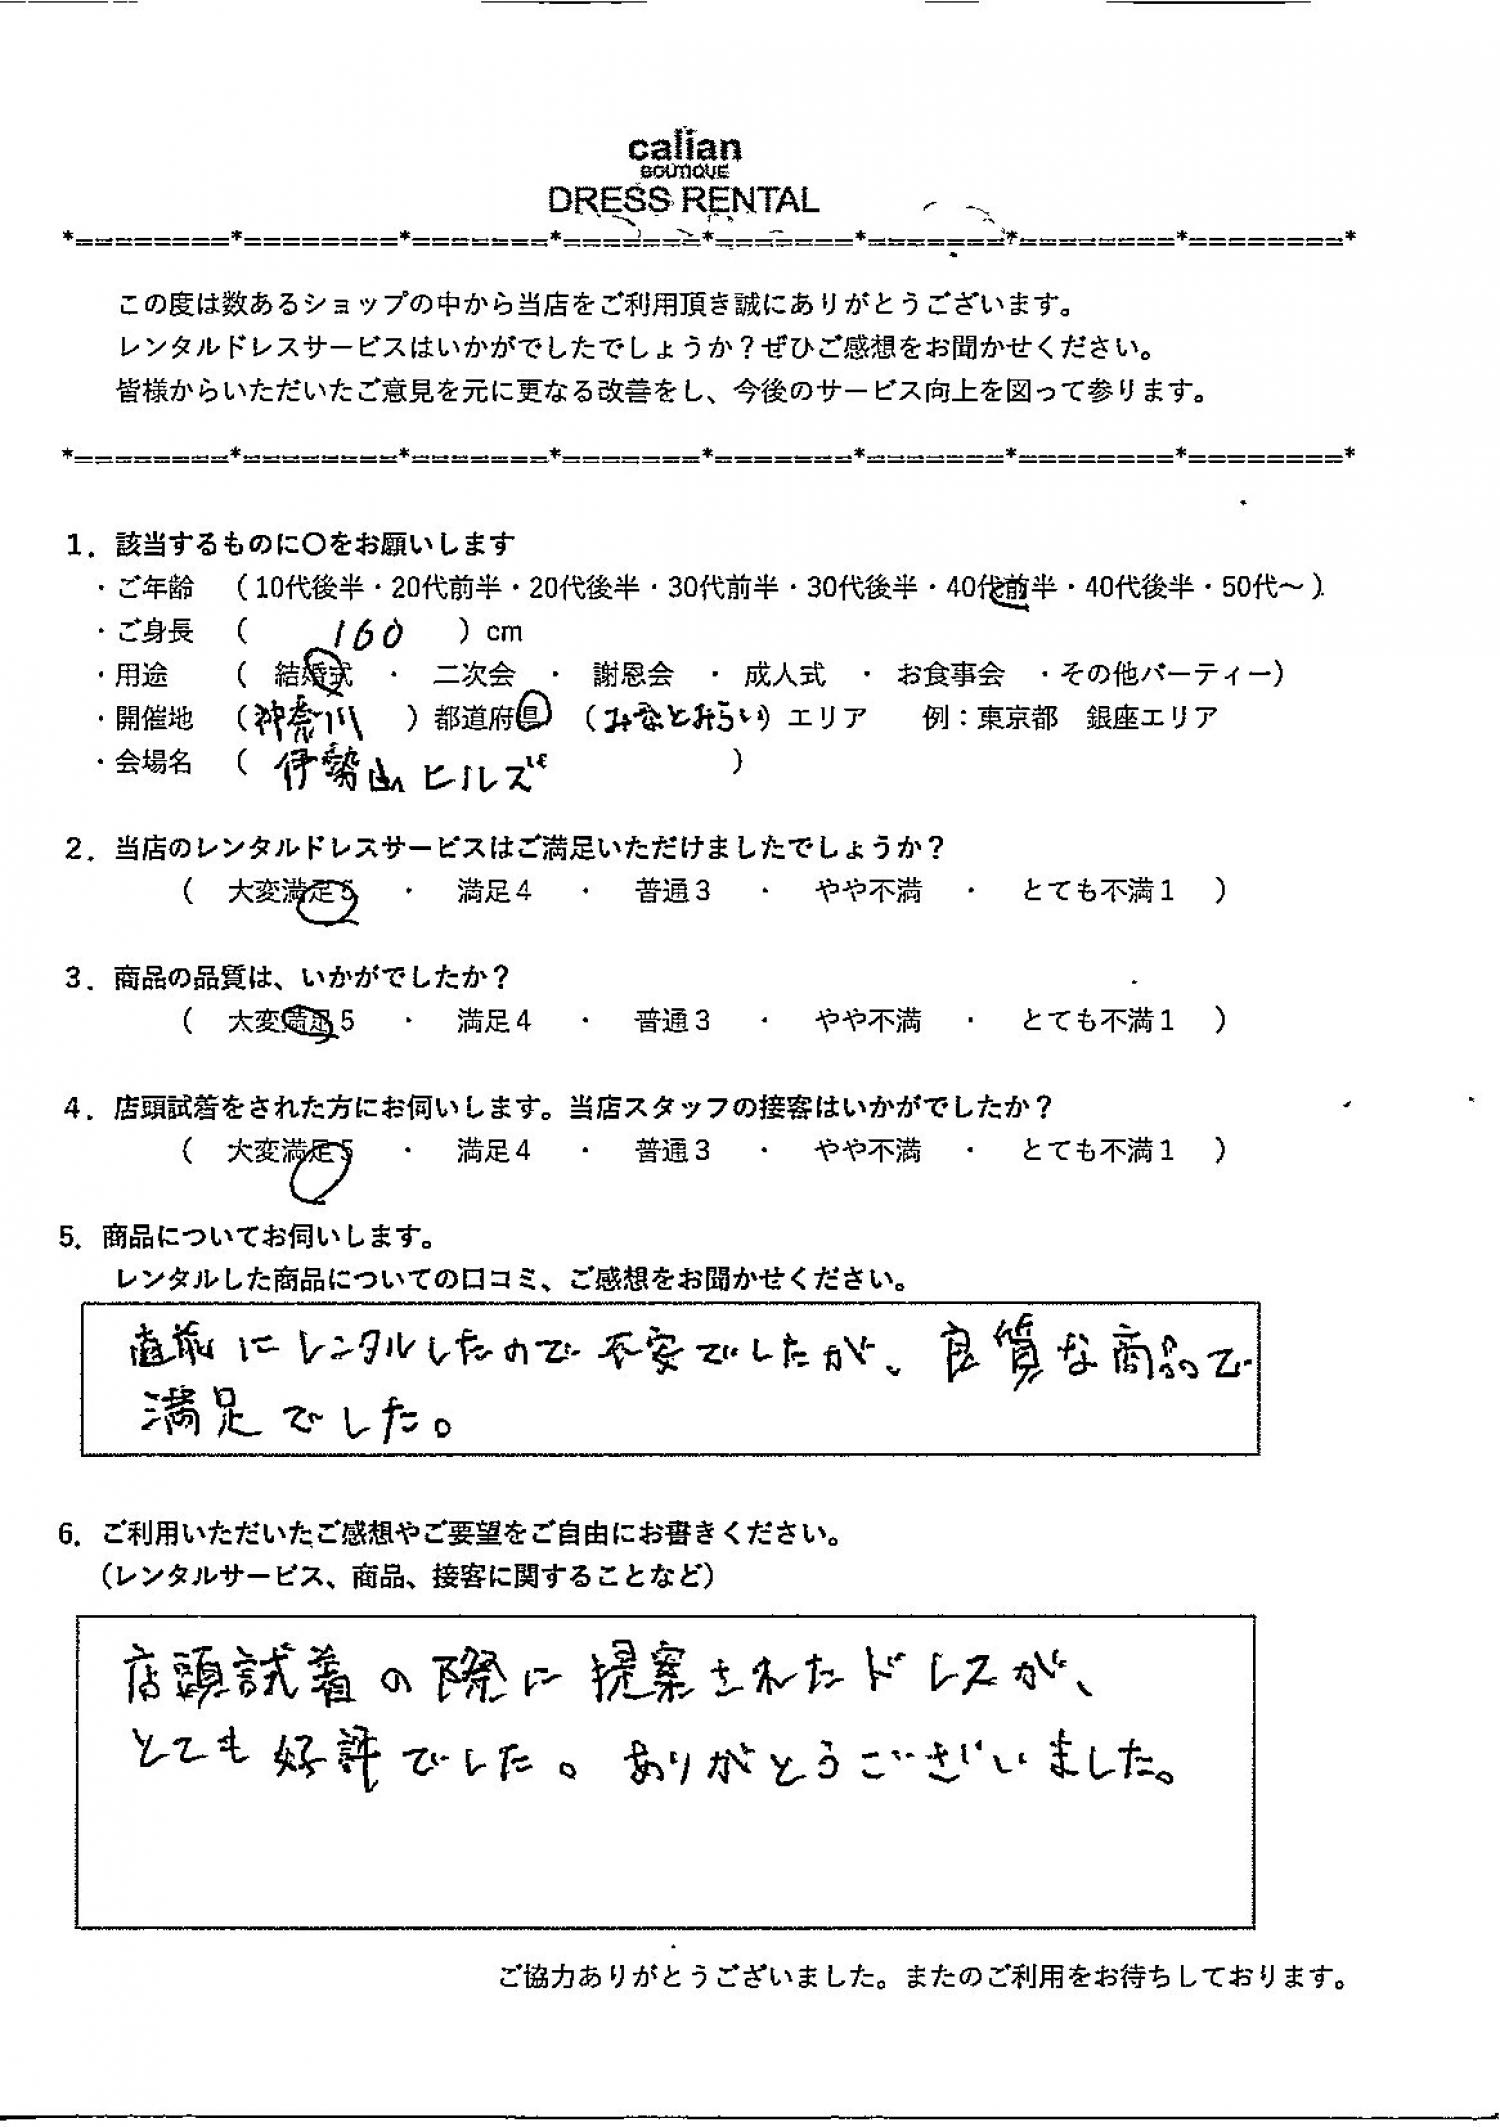 calian
BOUTIQUE
DRESS RENTAL
*========*========*=======*=======*=======*=======*========*========*
この度は数あるショップの中から当店をご利用頂き誠にありがとうございます。
レンタルドレスサービスはいかがでしたでしょうか？ぜひご感想をお聞かせください。
皆様からいただいたご意見を元に更なる改善をし、今後のサービス向上を図って参ります。
*========*========*=======*=======*=======*=======*========*========*
1．該当するものに〇をお願いします
・ご年齢　（10代後半・20代前半・20代後半・30代前半・30代後半・40代前半・40代後半・50代〜）
・ご身長　（　160　）cm
・用途　（　結婚式　・　二次会　・　謝恩会　・　成人式　・　お食事会　・その他パーティー）
・開催地　（神奈川　）都道府県　（みなとみらい）エリア　　例：東京都　銀座エリア
・会場名　（　伊勢山ヒルズ　）
2．当店のレンタルドレスサービスはご満足いただけましたでしょうか？
（　大変満足5　・　満足4　・　普通3　・　やや不満　・　とても不満1　）
3．商品の品質は、いかがでしたか？
（　大変満足5　・　満足4　・　普通3　・　やや不満　・　とても不満1　）
4．店頭試着をされた方にお伺いします。当店スタッフの接客はいかがでしたか？
（　大変満足5　・　満足4　・　普通3　・　やや不満　・　とても不満1　）
5．商品についてお伺いします。
レンタルした商品についての口コミ、ご感想をお聞かせください。
直前にレンタルしたので不安でしたが、良質な商品で
満足でした。
6．ご利用いただいたご感想やご要望をご自由にお書きください。
（レンタルサービス、商品、接客に関することなど）
店頭試着の際に提案されたドレスが、
とても好評でした。ありがとうございました。
ご協力ありがとうございました。またのご利用をお待ちしております。